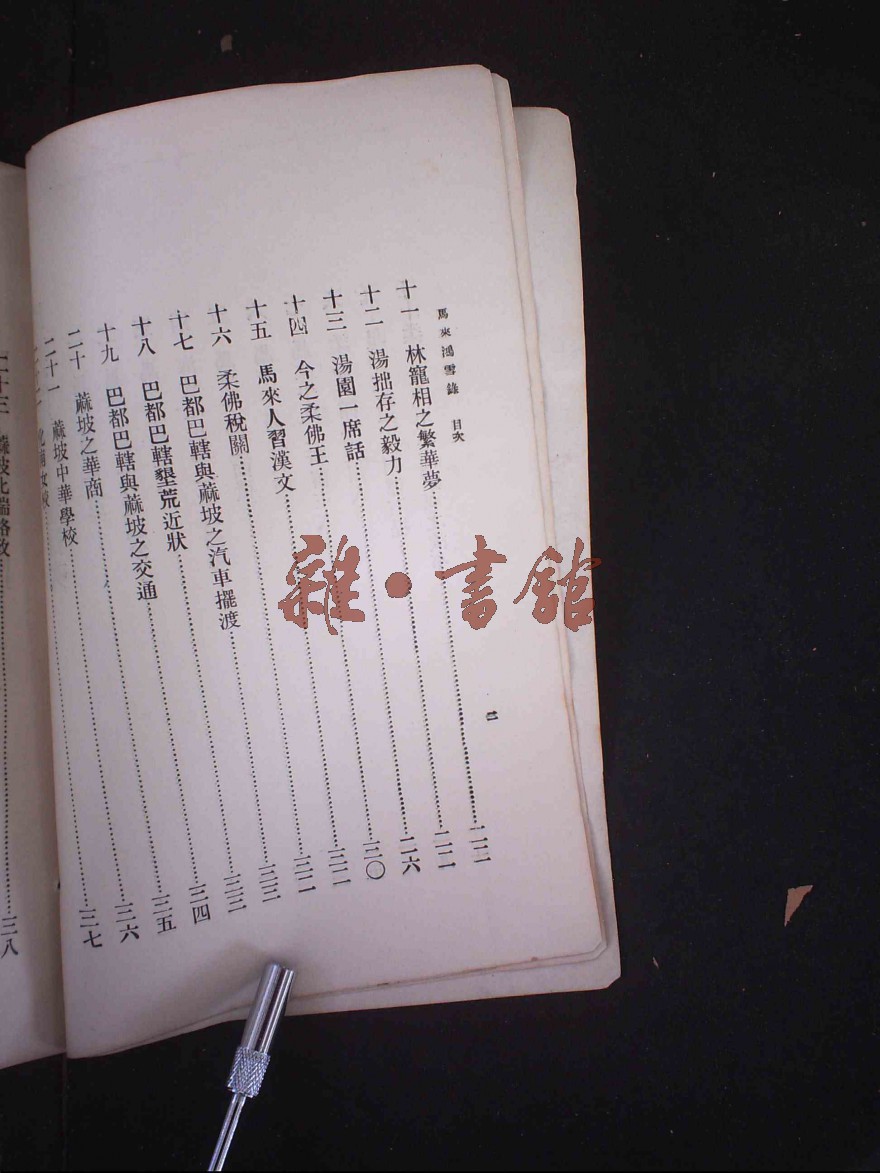 馬來鴻雪錄 目次 二
十一 林寵相之繁華夢……二二
十二 湯拙存之毅力……二二
十三 湯園一席話……二六
十四 今之柔佛王……三〇
十五 馬來人習漢文……三二
十六 柔佛稅關……三二
十七 巴都巴轄與蔴坡之汽車擺渡……三三
十八 巴都巴轄墾荒近狀……三三
十九 巴都巴轄與蔴坡之交通……三四
二十 蔴坡之華商……三五
二十一 蔴坡中華學校……三六
二十二 南女校……三七
二十三 蔴坡……三八
雜·書館